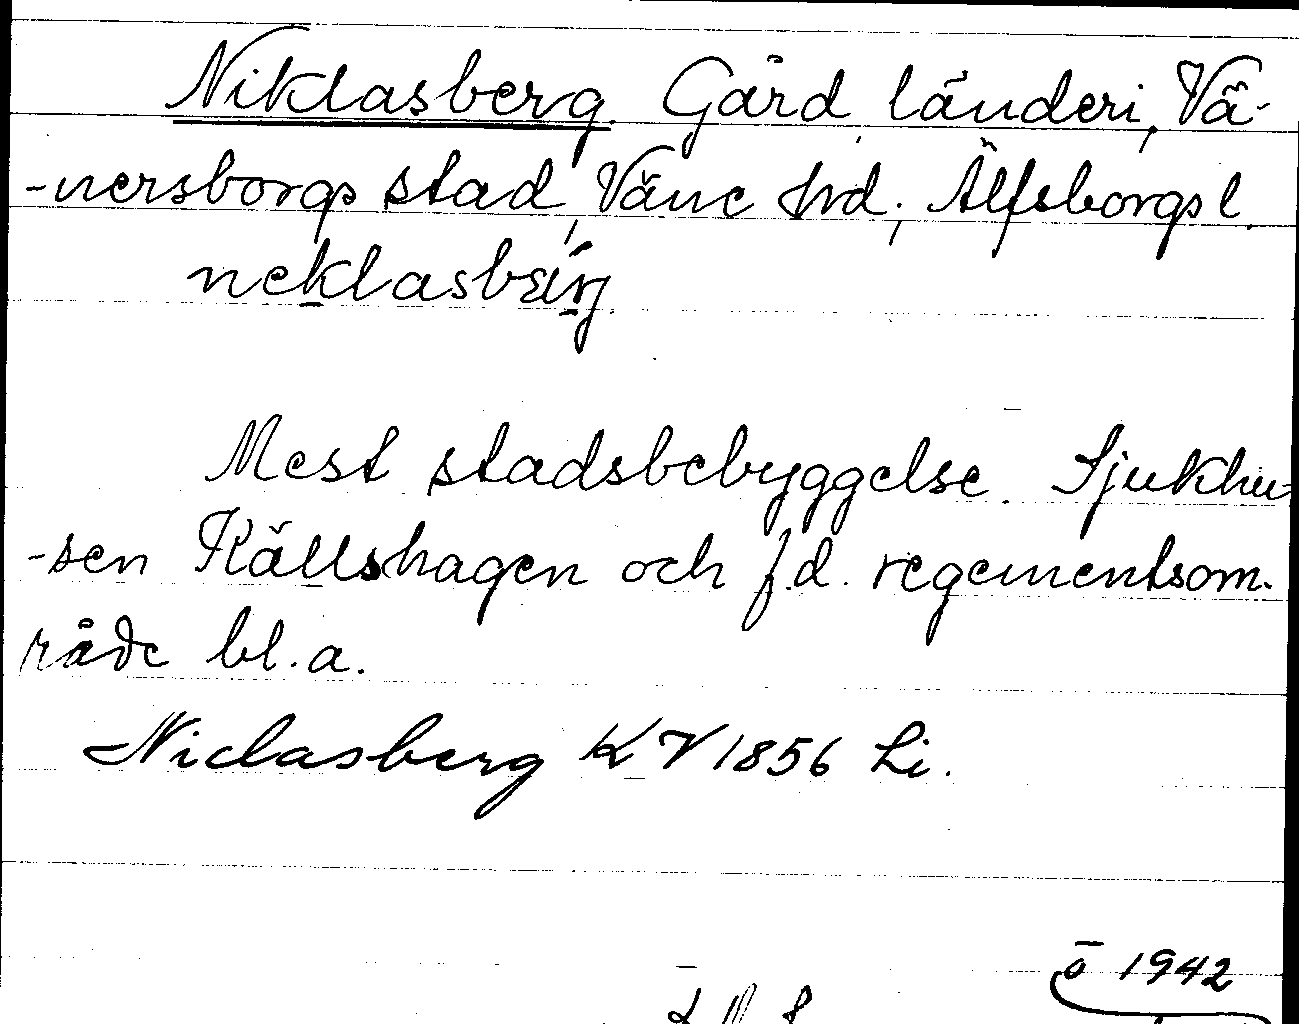 Niklasberg. Gård länderi, Vä-
-nersborgs stad, Väne hd, Älfsborgs l.
neklasbærj
Mest stadsbebyggelse. Sjukhu-
-sen Källshagen och f.d. regementsom-
råde bl.a.
Niclasberg K V 1856 Li.
ō 1942